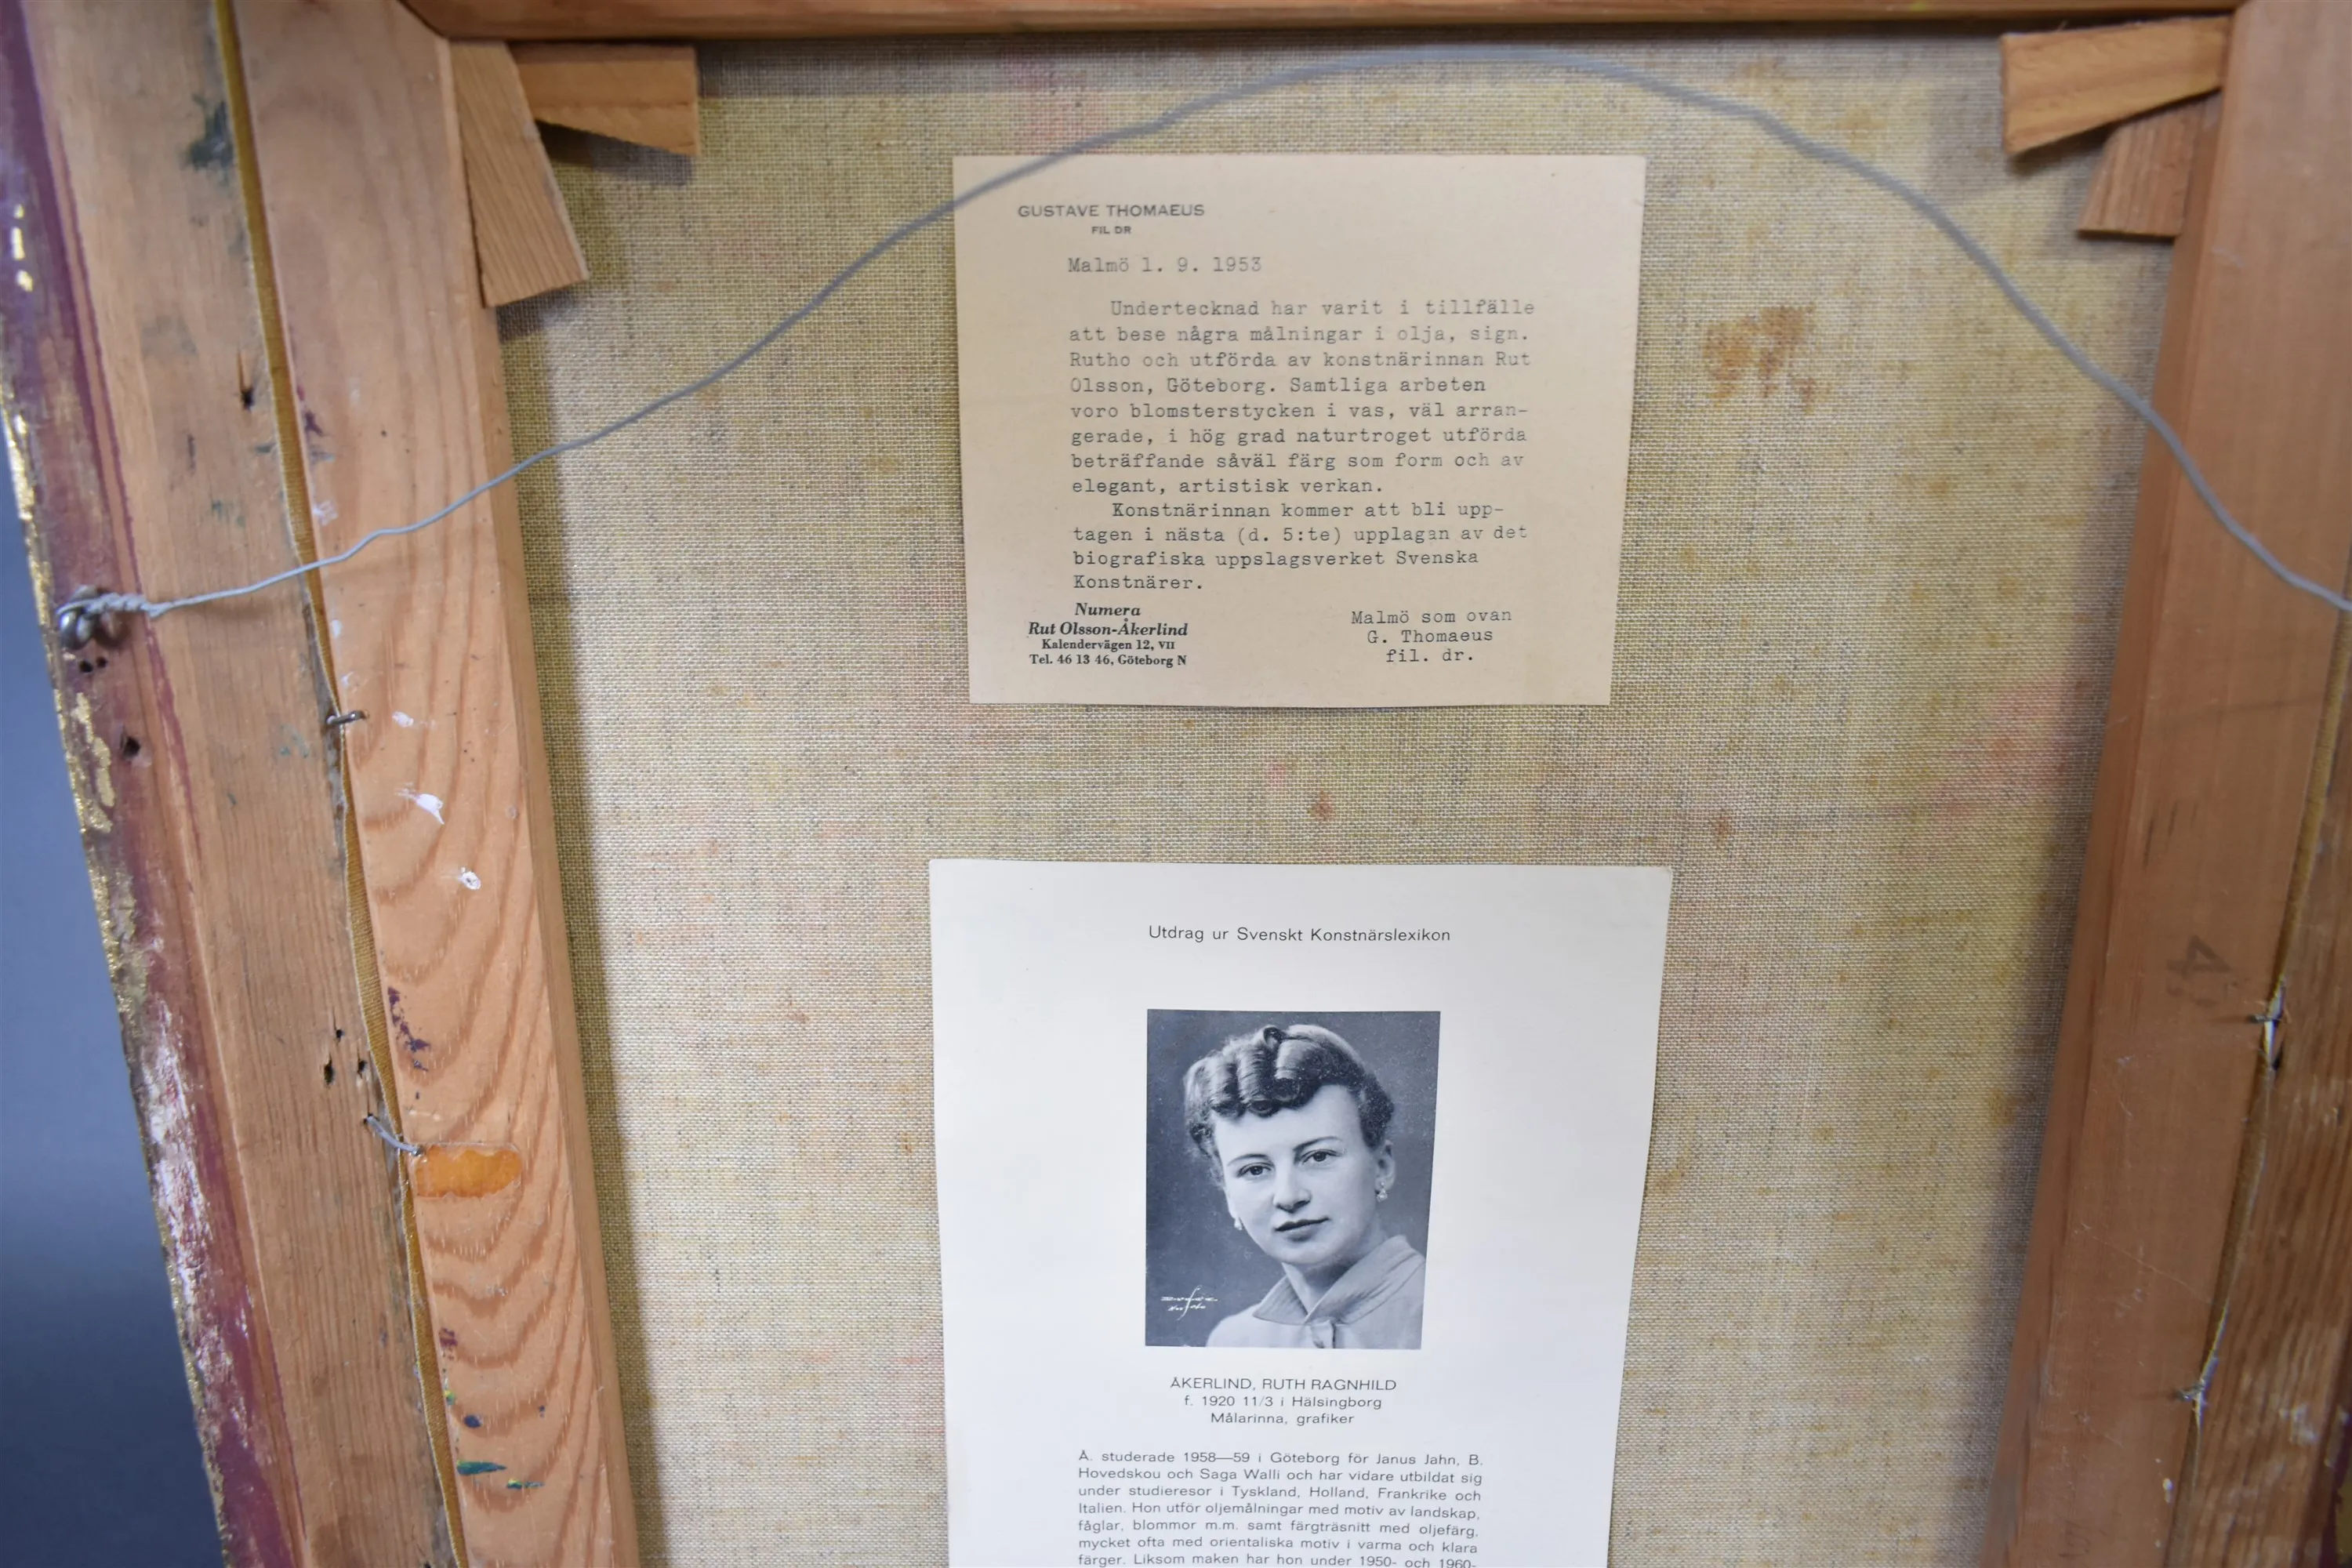 GUSTAVE THOMAEUS
FIL DR
Malmö 1. 9. 1953
Undertecknad har varit i tillfälle
att bese några målningar i olja, sign.
Rutho och utförda av konstnärinnan Rut
Olsson, Göteborg. Samtliga arbeten
voro blomsterstycken i vas, väl arran-
gerade, i hög grad naturtroget utförda
beträffande såväl färg som form och av
elegant, artistisk verkan.
Konstnärinnan kommer att bli upp-
tagen i nästa (d. 5:te) upplagan av det
biografiska uppslagsverket Svenska
Konstnärer.
Numera
Rut Olsson-Åkerlind
Kalendervägen 12, VII
Tel. 46 13 46, Göteborg N
Malmö som ovan
G. Thomaeus
fil. dr.
4
Utdrag ur Svenskt Konstnärslexikon
ÅKERLIND, RUTH RAGNHILD
f. 1920 11/3 i Hälsingborg
Målarinna, grafiker
Å. studerade 1958—59 i Göteborg för Janus Jahn, B.
Hovedskou och Saga Walli och har vidare utbildat sig
under studieresor i Tyskland, Holland, Frankrike och
Italien. Hon utför oljemålningar med motiv av landskap,
fåglar, blommor m.m. samt färgträsnitt med oljefärg,
mycket ofta med orientaliska motiv i varma och klara
färger. Liksom maken har hon under 1950- och 1960-